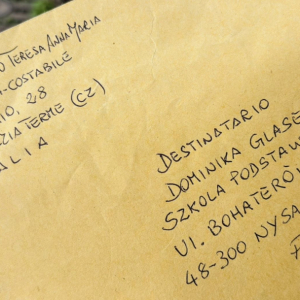 TERESA/ANNA MARIA
-COSTABILE
IO, 28
ZIA TERME (CZ)
ALIA
DESTINATARIO
DOMINIKA GLASE
SZKOLA PODSTAW
Ul. BOHATERÓ
48-300 NYSA